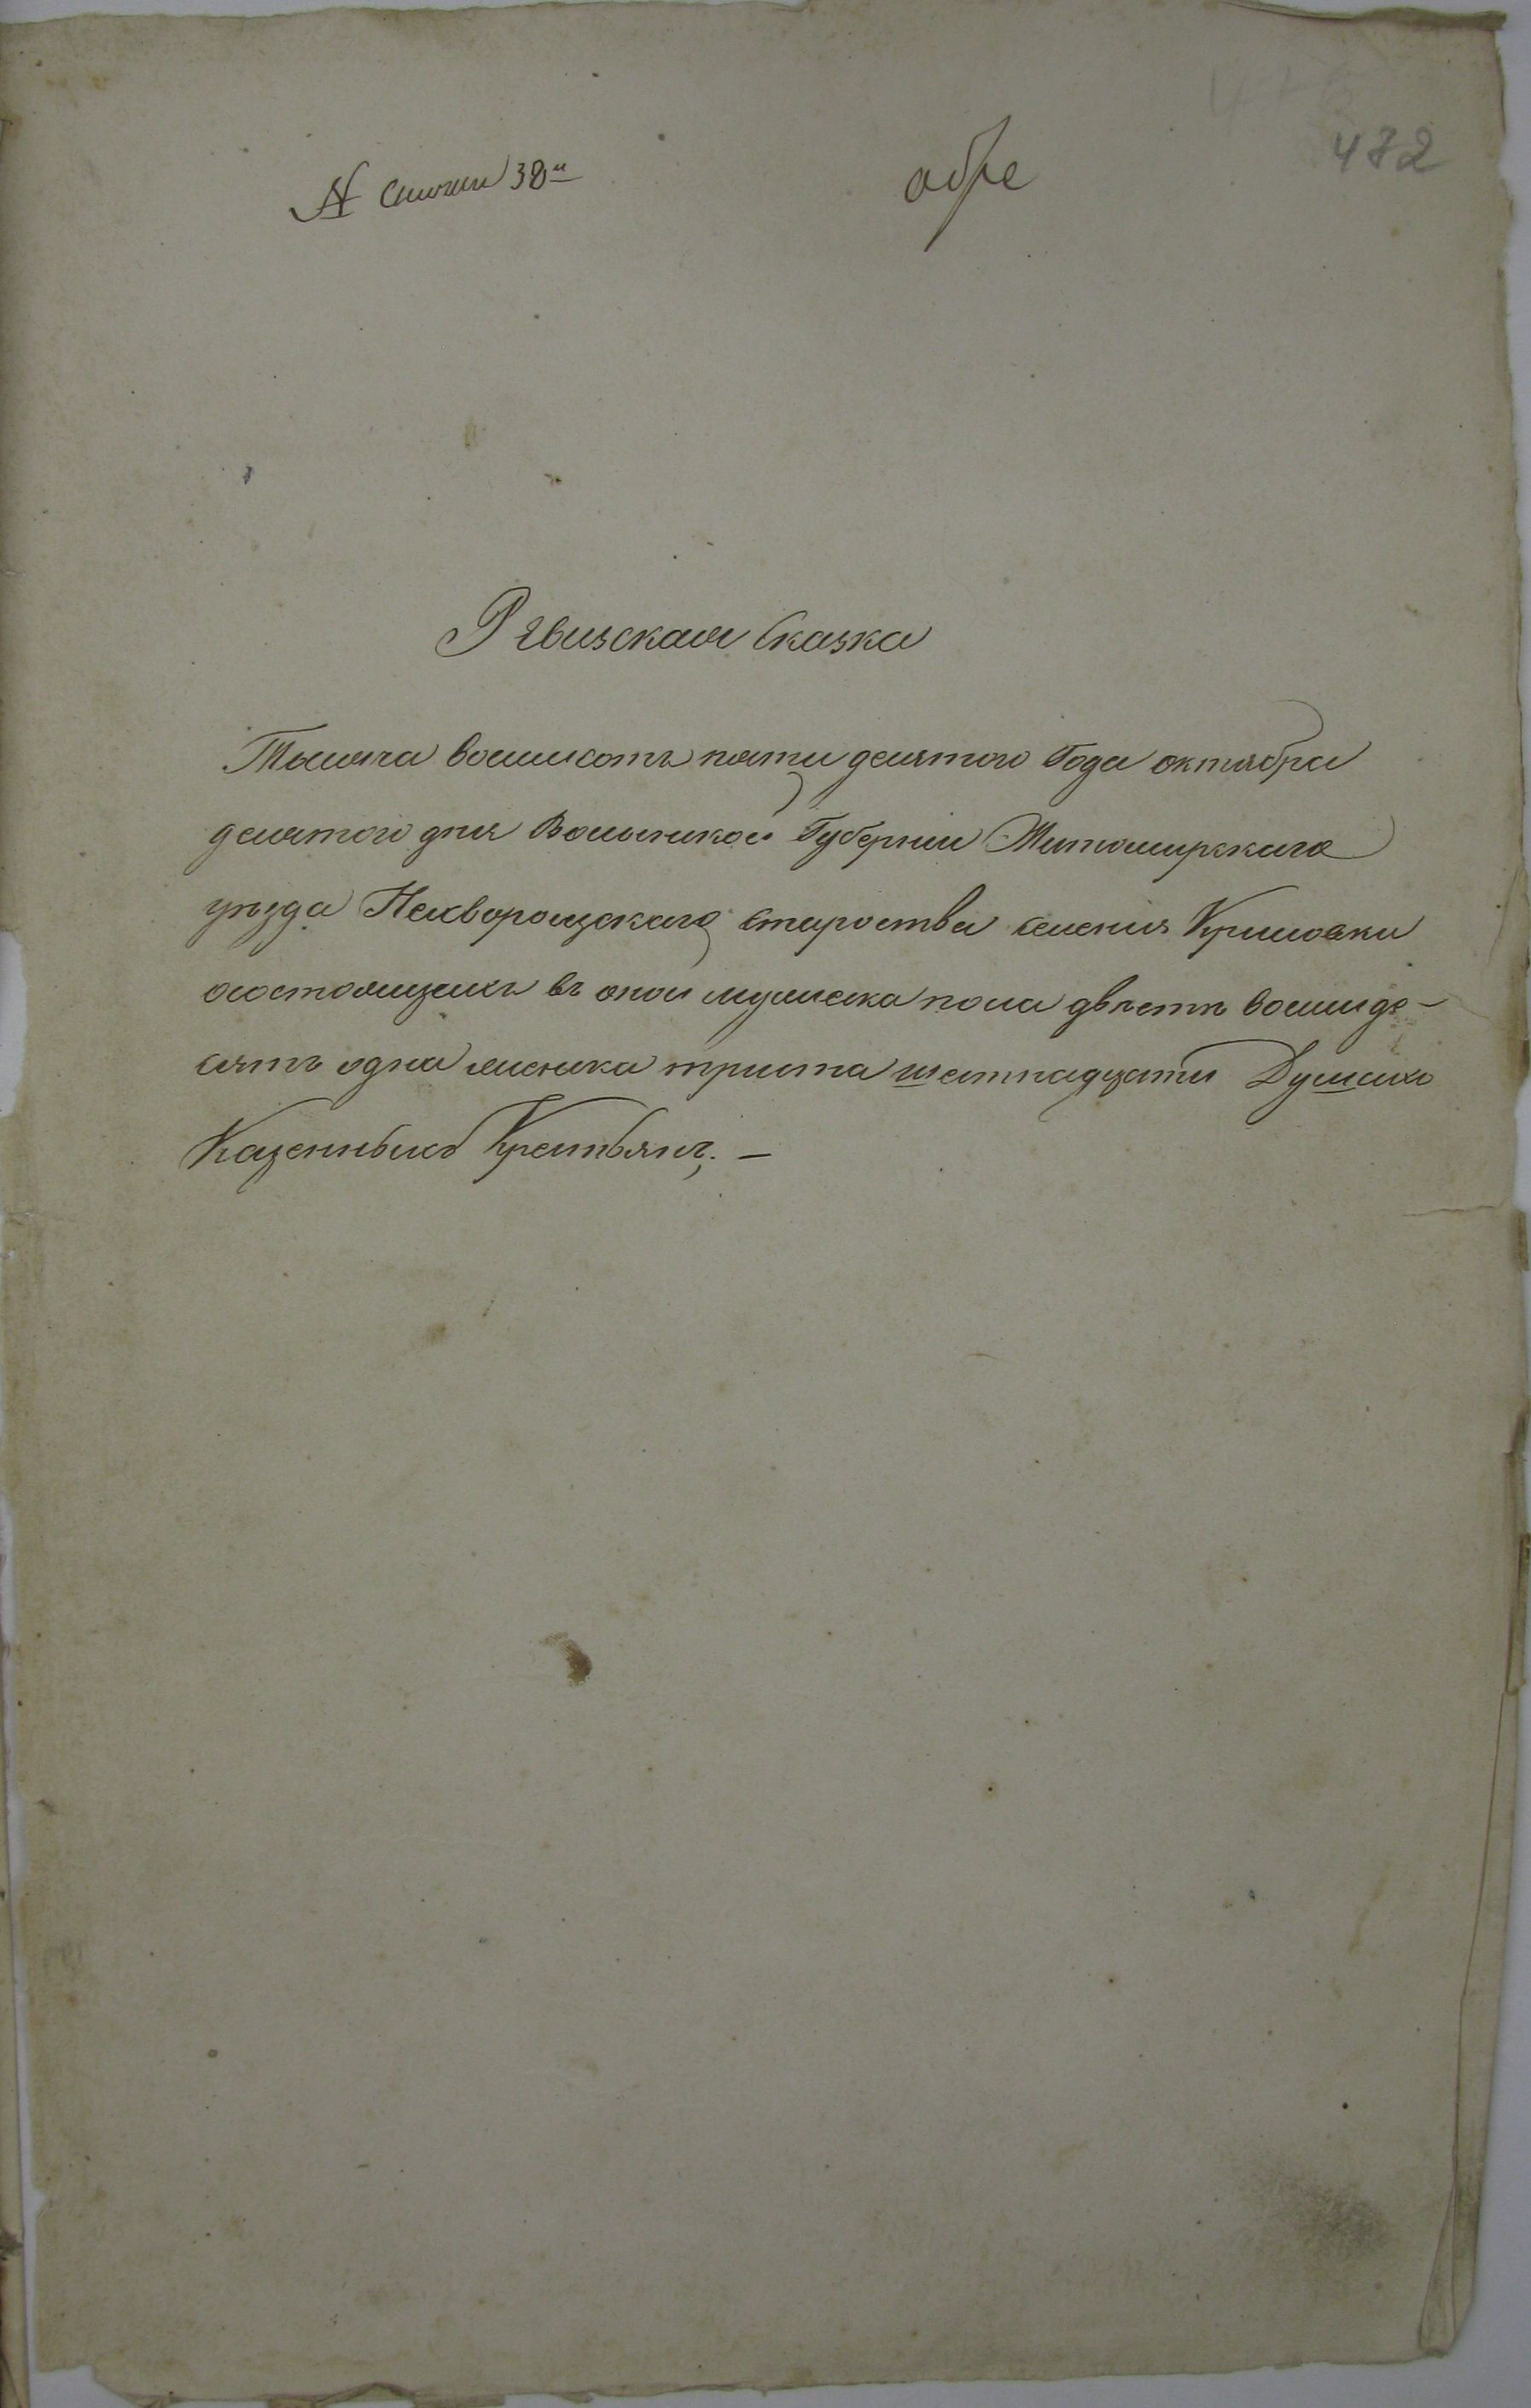 № описи 38й
обре
472
Ревизская Сказка
Тысяча восимсотъ пятидесятого Года октября
десятого дня Волынской Губернии Житомирского
уезда Нехворощского Староства селения Крыловки
осостоящихъ въ оной мужеска пола двѣстѣ восимде-
сятъ одна женска триста шестнадцати Душахъ
Казенныхъ Крестьянъ. —